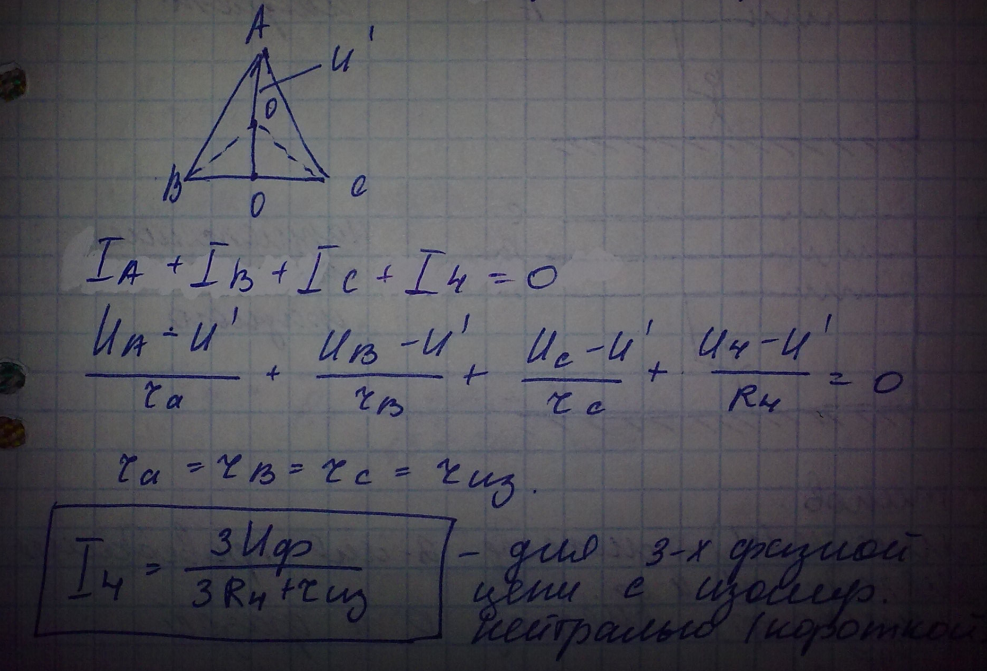 A
U'
O
B
C
O
I_A + I_B + I_C + I_ч = 0
(U_A - U')/r_a + (U_B - U')/r_B + (U_C - U')/r_c + (U_ч - U')/R_ч = 0
r_a = r_B = r_c = r_из.
I_ч = 3Uф/(3R_ч + r_из) - для 3-х фазной
цепи с изолир.
нейтралью (короткой